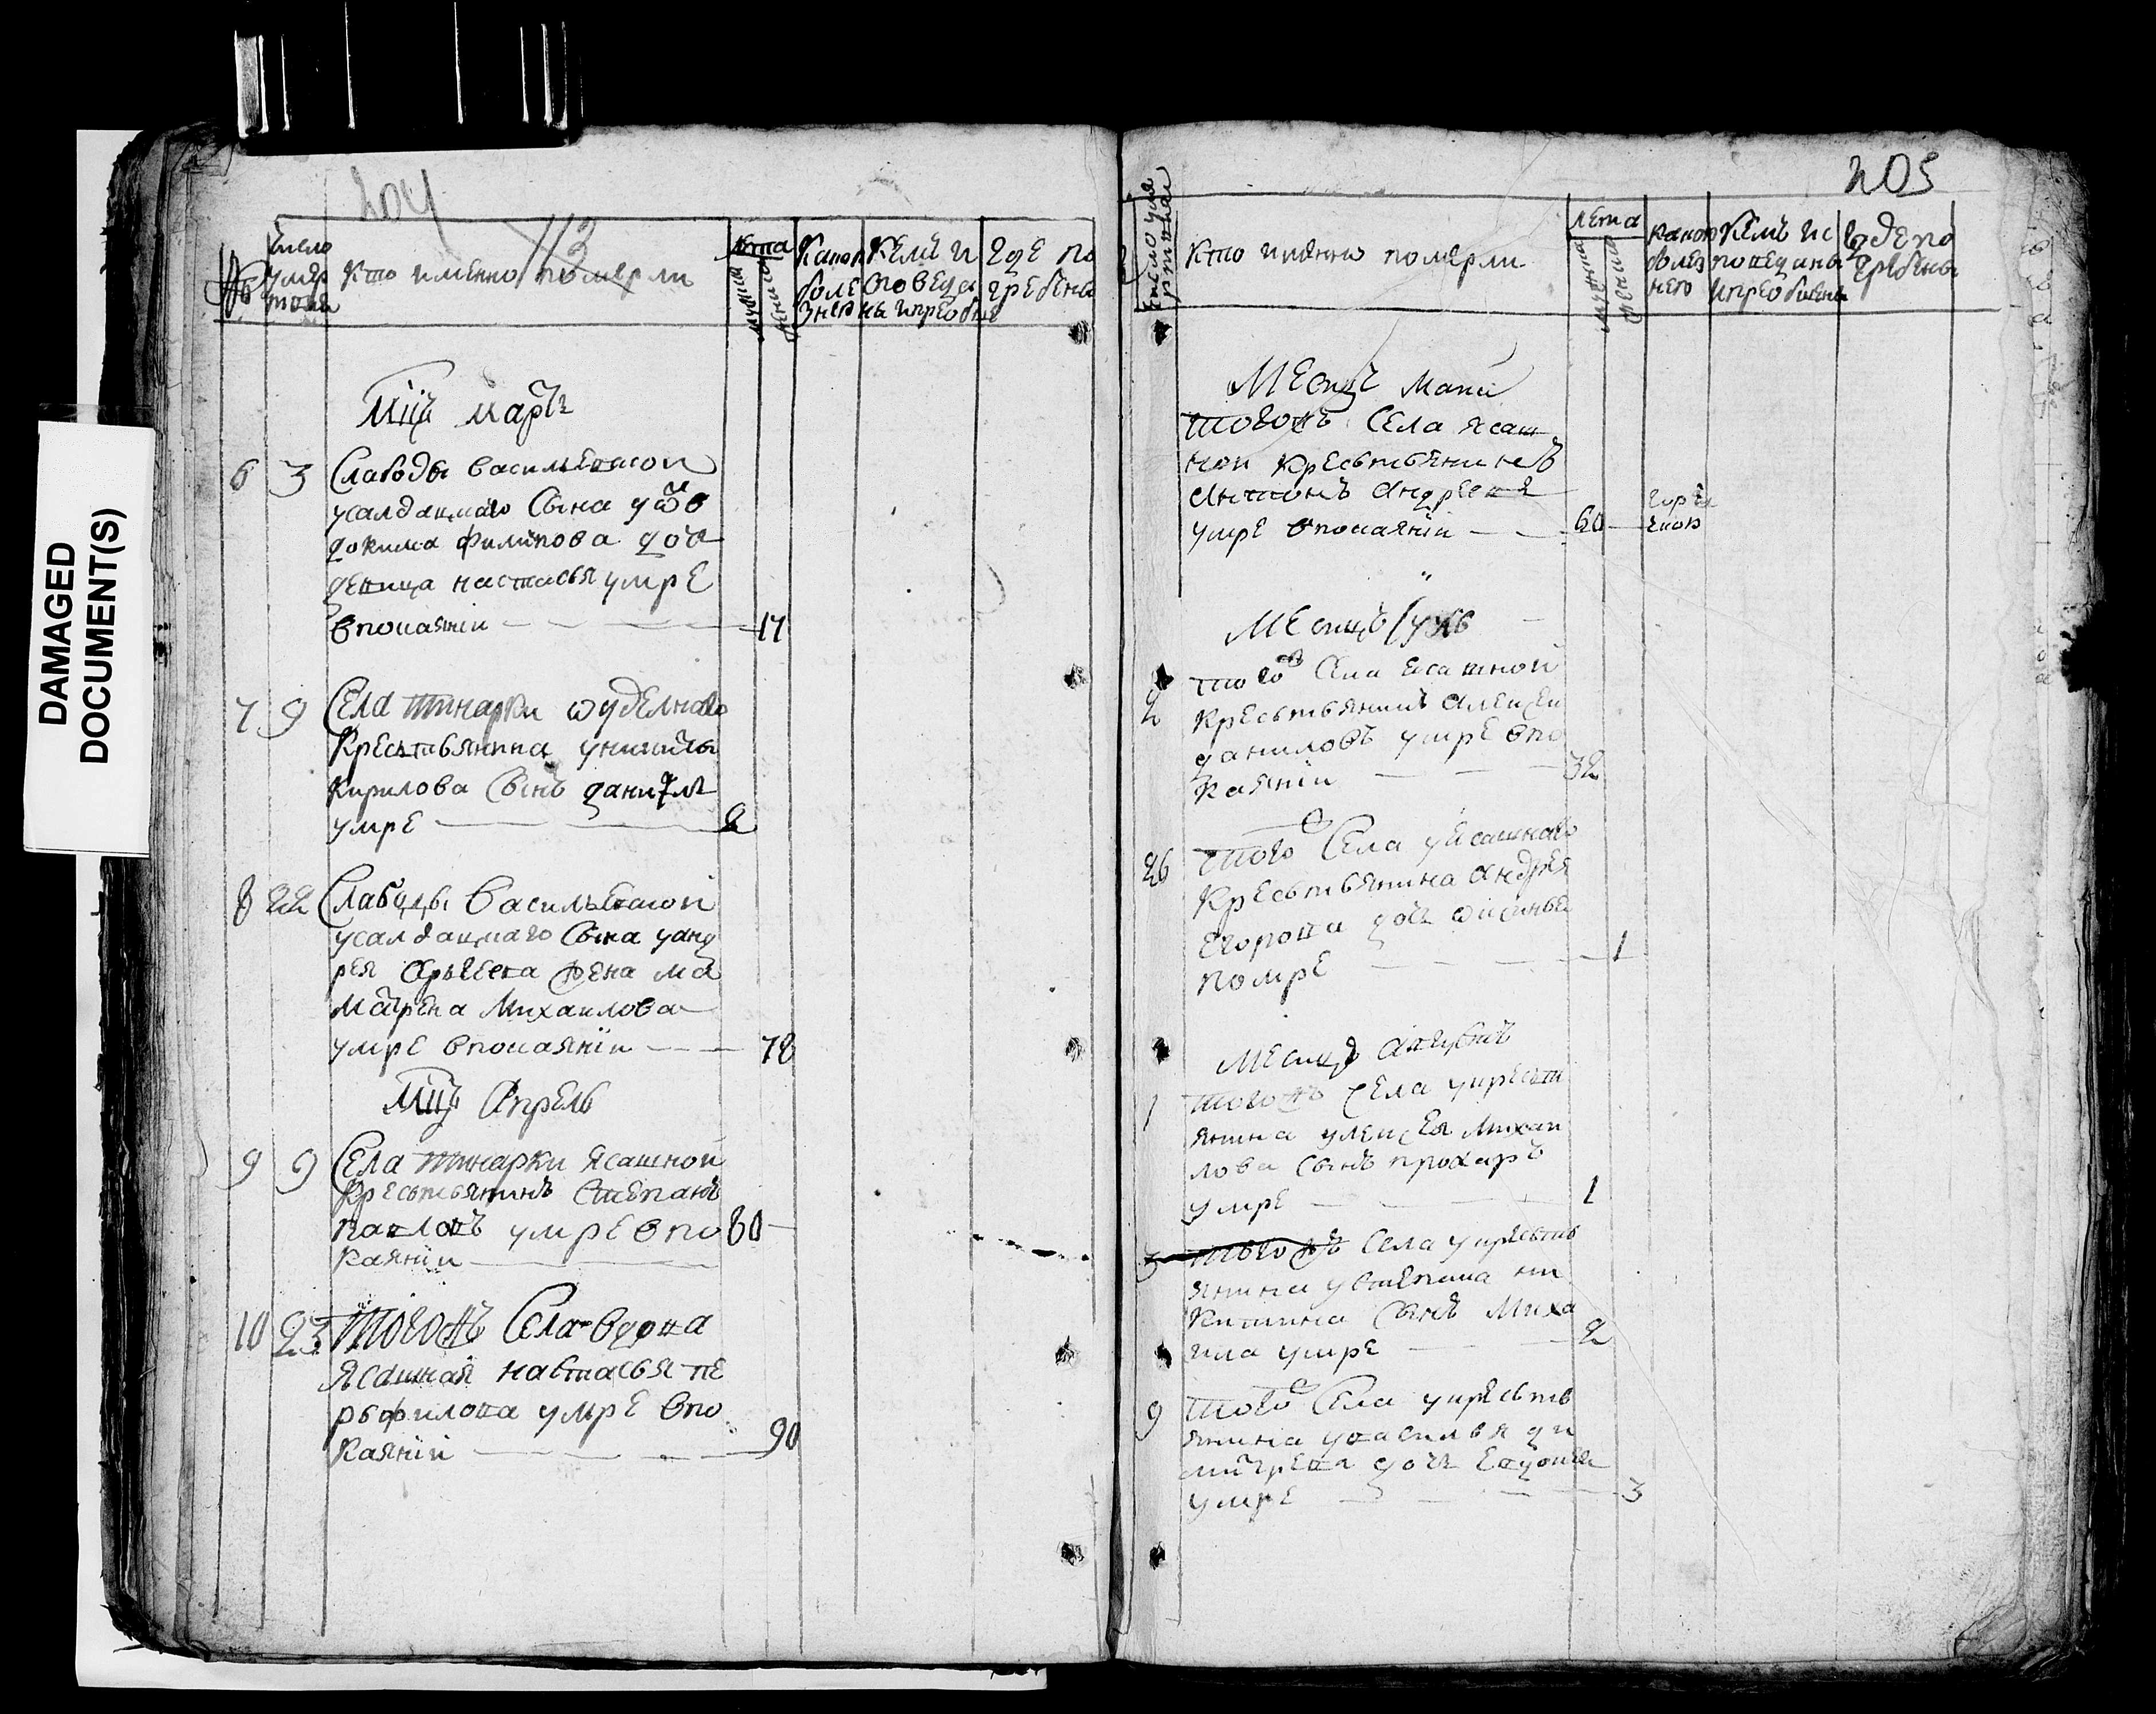 DAMAGED
DOCUMENT(S)
204
113
№
число
умер
кто имянно померли
лета
мужска
женска
какою
болѣ
знею
кемъ и
споведа
ны и приоб
где по
гребены
Мцъ мартъ
6 3 Слабоды василевской
усалдацкаго сына у
докима филипова доч
девица настасья умре
впокаянiи 17
7 9 Села тинарки удельнаго
Крестьвянина уникиты
Кирилова сынъ данила
умре 2
8 22 Слабоды василевской
усалдацкаго сына уанд
рея жена ма
матрена Михаилова
умре впокаянiи 78
Мцъ Апрель
9 9 Села тинарки ясашной
Кресьтвянинъ степанъ
павловъ умре впо 80
каянiи
10 23 тогожъ Села вдова
ясашная настасья пе
рьфилова умре впо
каянiй 90
205
число уме
ртвыхъ
кто имянно померли
лета
мужска
женска
какою
болез
нею
кемъ ис
поведаны
и приобщены
где по
гребены
Месяцъ маий
тогожъ Села ясаш
ной кресьтвянинъ
антонъ андреевъ
умре впокаянiи 60 горя
чкою
Месяцъ
2 того Села ясашной
Кресьтвянинъ алексеи
даниловъ умре впо
каянiи 32
26 того Села уясашнаго
Кресьтвянина андрея
егорова дочь
помре 1
Месяцъ августъ
1 тогожъ Села укресьти
янина улексея михаи
лова сынъ прохаръ
умре 1
3 тогожъ Села укресьтв
янина устепана ни
китина сынъ Миха
ила умре 2
9 того Села укресьтв
янина увасилья ди
митрева дочь Евдокия
умре 3